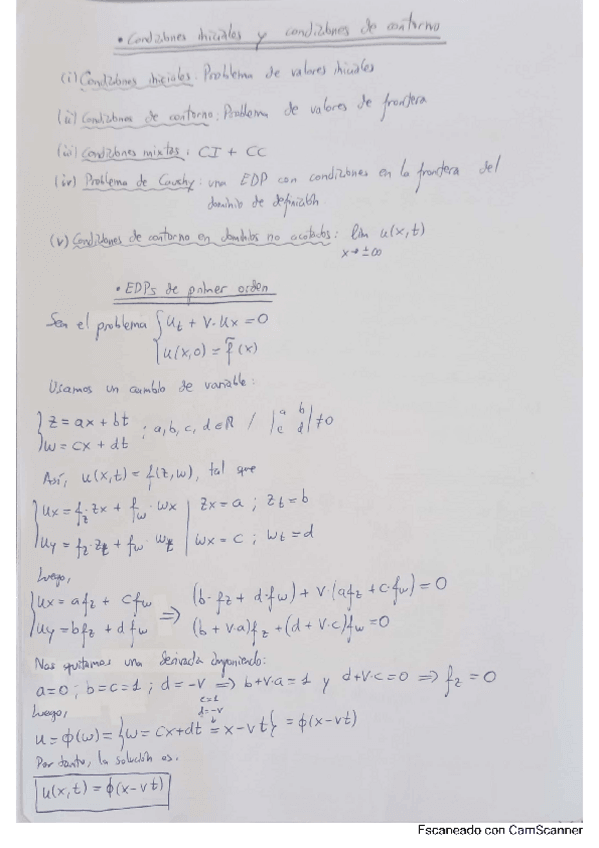 • Condiziones iniciales y condiziones de contorno
(i) Condiziones iniciales: Problema de valores iniciales
(ii) Condiziones de contorno: Problema de valores de frontera
(iii) Condiziones mixtas: CI + CC
(iv) Problema de Cauchy: una EDP con condiziones en la frontera del
dominio de definición
(v) Condiziones de contorno en dominios no acotados: lim u(x,t)
x→±∞
• EDPs de primer orden
Sea el problema { ut + v·ux = 0
u(x,0) = f̃(x)
Usamos un cambio de variable:
{ z = ax + bt
w = cx + dt ; a,b,c,d∈ℝ / |a b; c d| ≠ 0
Así, u(x,t) = f(z,w), tal que
{ ux = fz·zx + fw·wx | zx = a ; zt = b
uy = fz·zt + fw·wt | wx = c ; wt = d
Luego,
{ ux = afz + cfw ⇒ (b·fz + d·fw) + v·(afz + c·fw) = 0
uy = bfz + dfw (b + v·a)fz + (d + v·c)fw = 0
Nos quitamos una derivada imponiendo:
a=0 ; b=c=1 ; d=-v ⇒ b+v·a=1 y d+v·c=0 ⇒ fz = 0
Luego,
c=1
d=-v
u = ϕ(w) = {w = cx+dt = x-vt} = ϕ(x-vt)
Por tanto, la solución es.
u(x,t) = ϕ(x-vt)
Escaneado con CamScanner